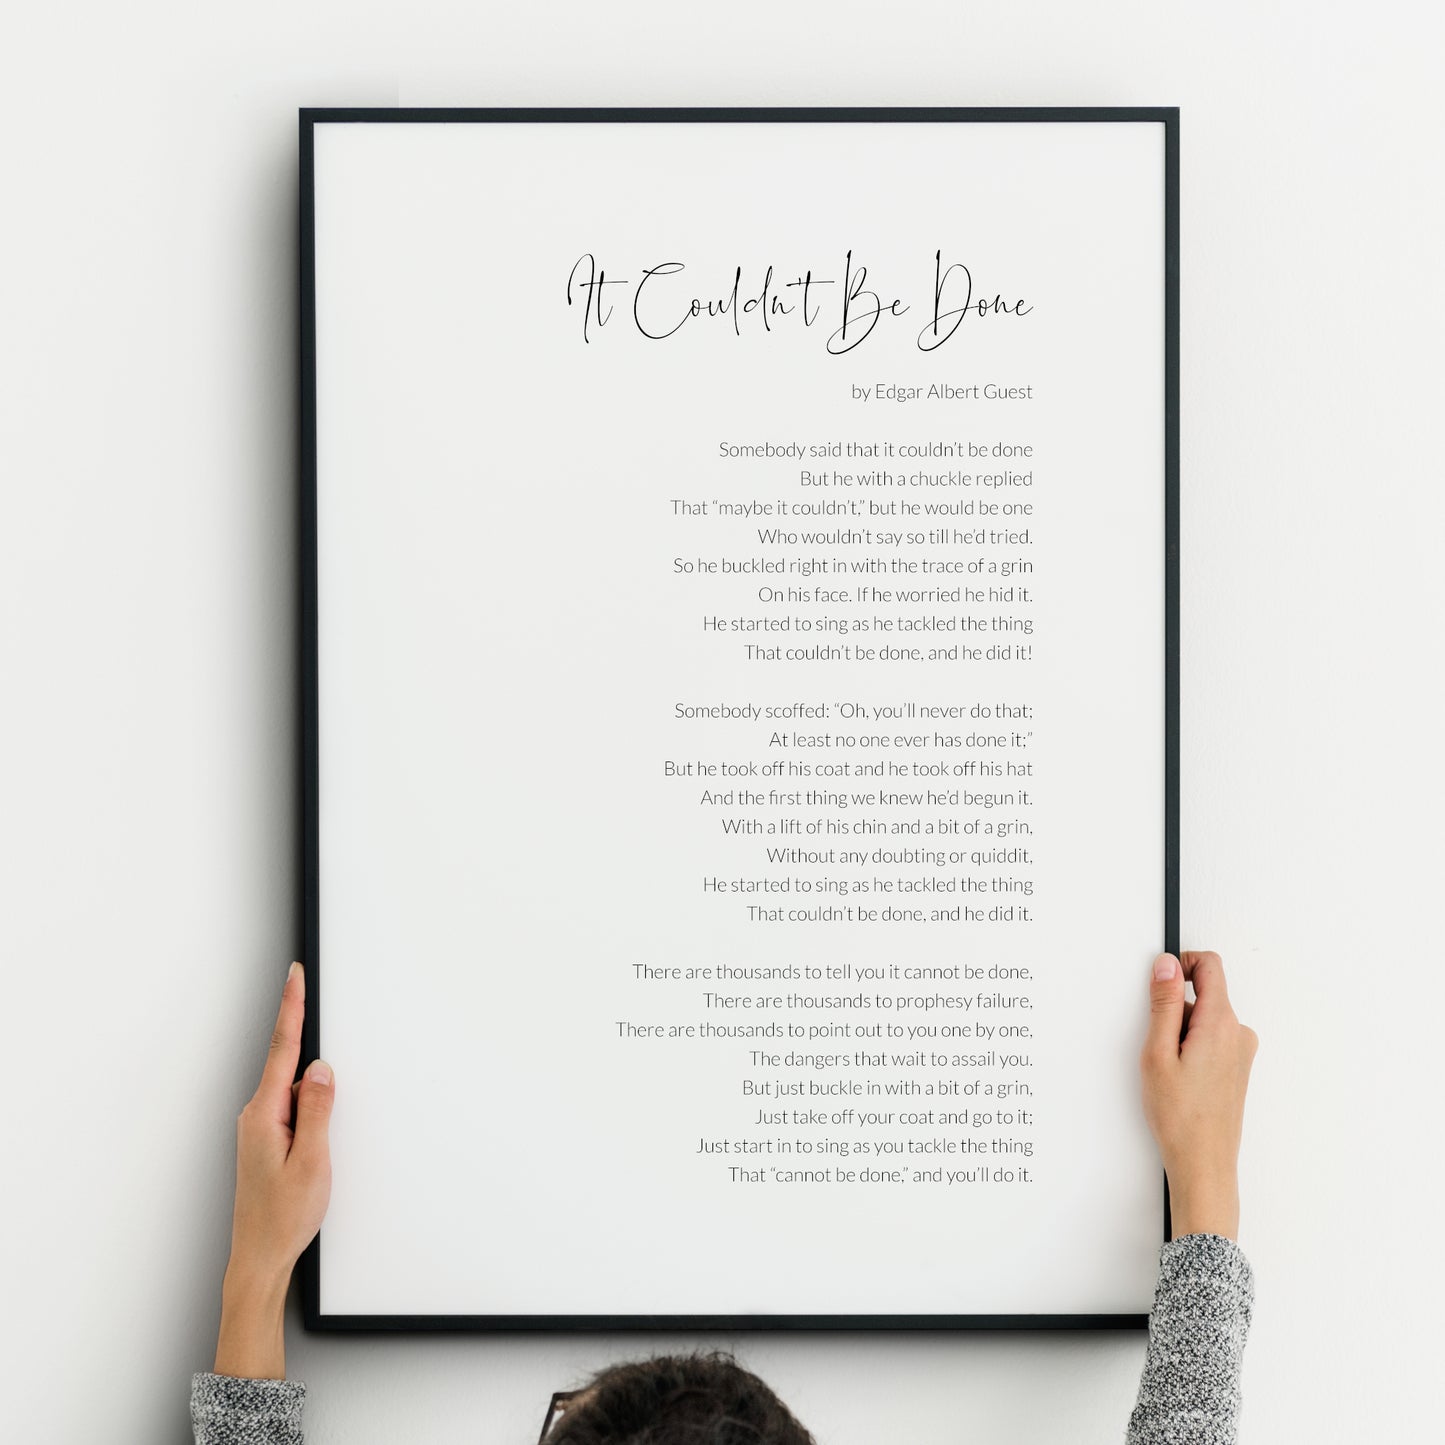 It Couldn't Be Done
by Edgar Albert Guest
Somebody said that it couldn’t be done
But he with a chuckle replied
That “maybe it couldn’t,” but he would be one
Who wouldn’t say so till he’d tried.
So he buckled right in with the trace of a grin
On his face. If he worried he hid it.
He started to sing as he tackled the thing
That couldn’t be done, and he did it!
Somebody scoffed: “Oh, you’ll never do that;
At least no one ever has done it;”
But he took off his coat and he took off his hat
And the first thing we knew he’d begun it.
With a lift of his chin and a bit of a grin,
Without any doubting or quiddit,
He started to sing as he tackled the thing
That couldn’t be done, and he did it.
There are thousands to tell you it cannot be done,
There are thousands to prophesy failure,
There are thousands to point out to you one by one,
The dangers that wait to assail you.
But just buckle in with a bit of a grin,
Just take off your coat and go to it;
Just start in to sing as you tackle the thing
That “cannot be done,” and you’ll do it.